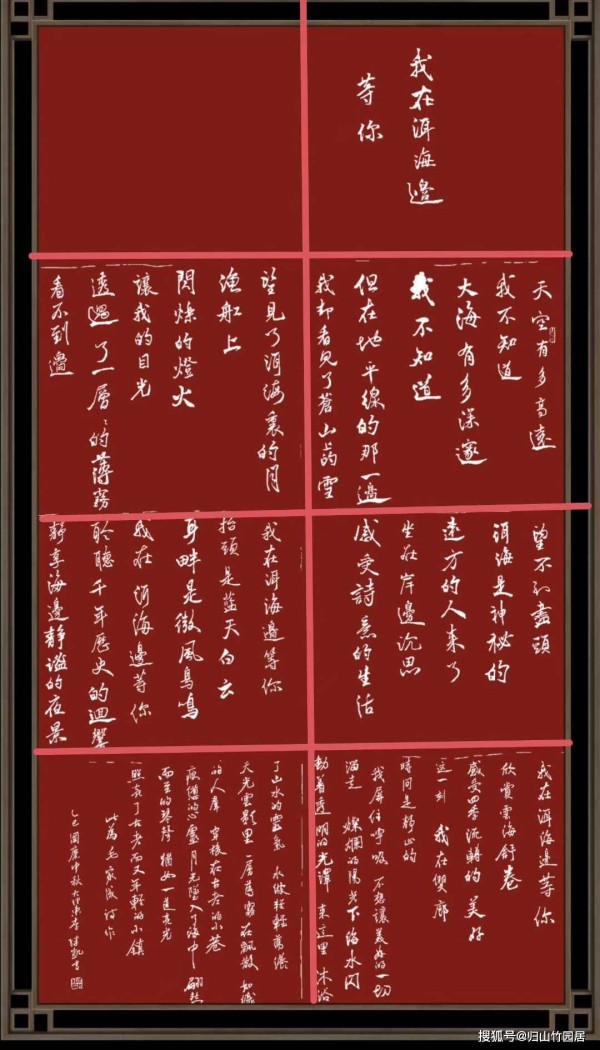 我在洱海邊
等你
天空有多高遠
我不知道
大海有多深邃
我不知道
但在地平線的那一邊
我却看見了蒼山上的雪
望見了洱海裏的月
漁船上
閃爍的燈火
讓我的目光
透過了一層々的薄霧
看不到邊
望不到盡頭
洱海是神祕的
遠方的人來了
坐在岸邊沉思
感受詩意的生活
我在洱海邊等你
抬頭是藍天白云
身畔是微風鳥鳴
我在洱海邊等你
聆聽千年歷史的迴響
靜享海邊靜謐的夜景
我在洱海邊等你
欣賞雲海舒卷
感受四季流轉的美好
這一刻 我在雙廊
時間是靜止的
我屏住呼吸 不想讓美好的一切
溜走 燦爛的陽光下海水閃
動着透明的光澤 來這里 沐浴
了山水的靈氣 水做輕輕蕩漾
天光雲影里 一層薄霧在飄散 如織
的人群 穿梭在古老的小巷
疲憊的心靈 月光墜入了海中 翩然
而至的琴聲 猶如一道亮光
照亮了古老而又年輕的小鎮
此為毛家俊詩作
乙巳國慶中秋
搜狐号@归山竹园居